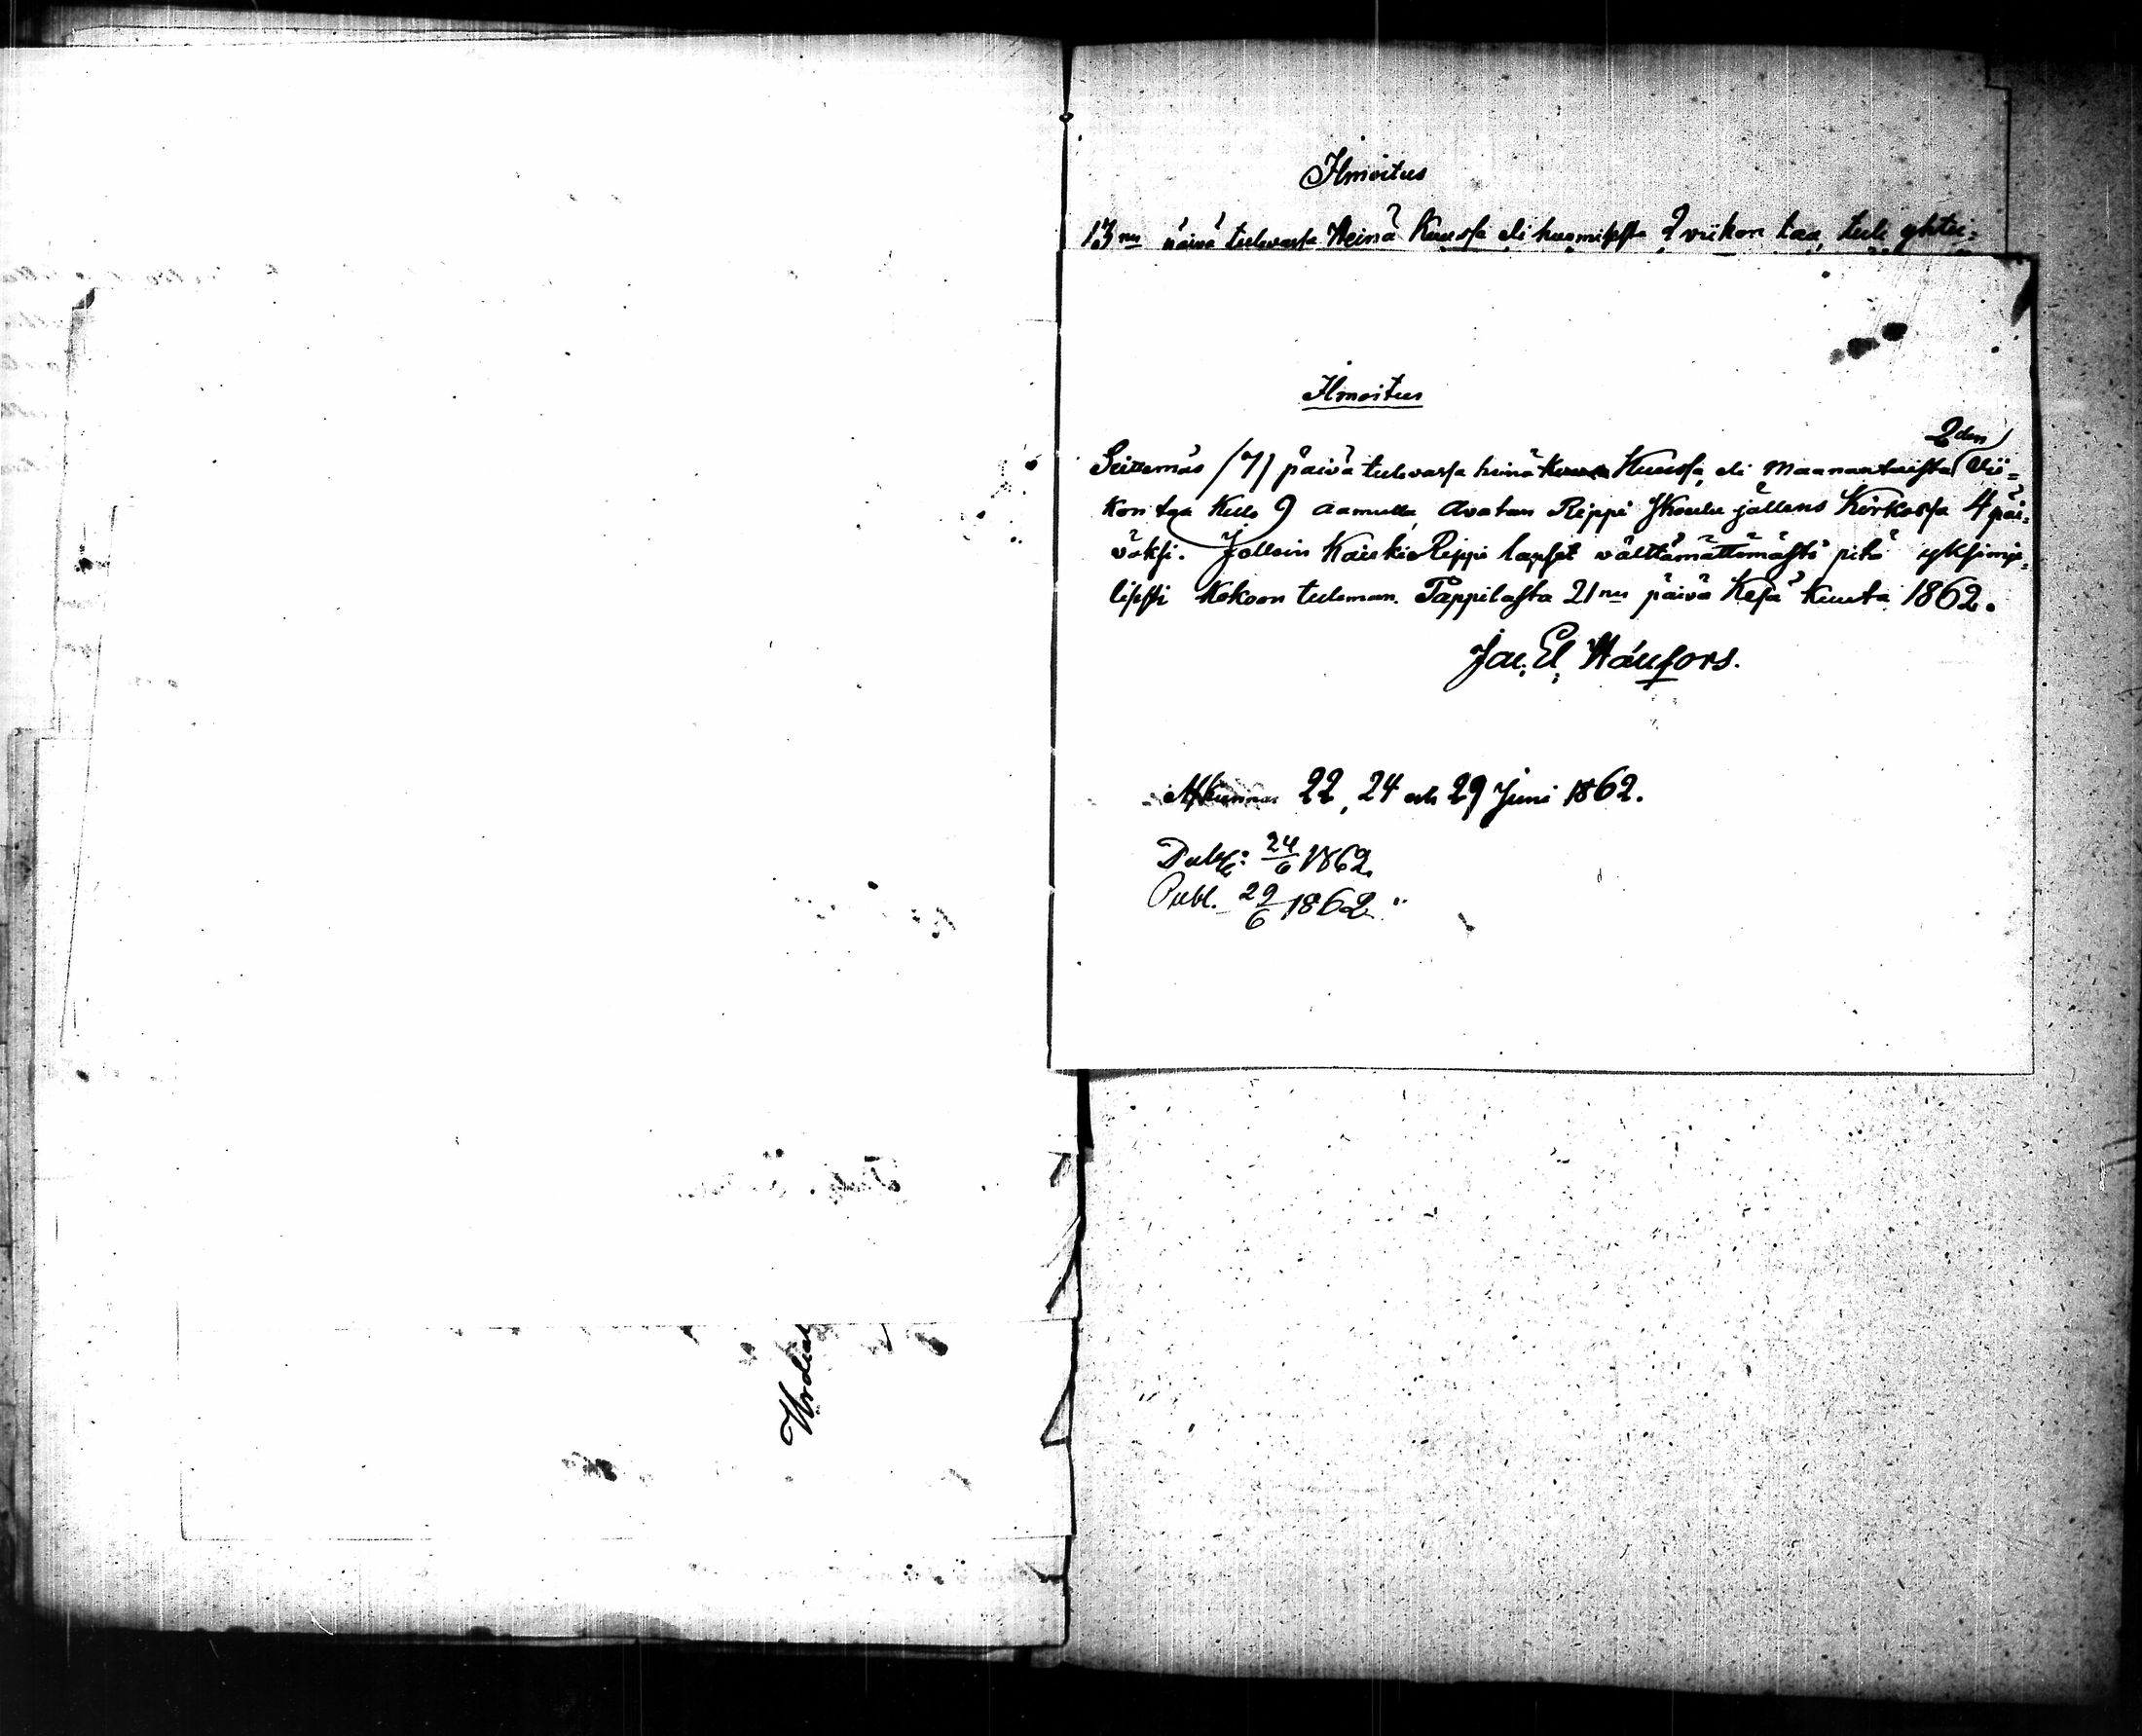 Ilmoitus
13ns päivä tulevasta Heinä Kuussa eli huomisesta 2 viikon taa, tule yhtei=
Ilmoitus
Seittemäs (7) päivä tulevassa heinä Kuussa, eli Maanantaista 2den Vii=
kon taa Kulo 9 aamulla, Avatan Rippi Skoulu jällens Kirkossa 4 päi=
väksi. Jolloin Kaiki Rippi lapset wälttämättömästi pitä yksimie=
lisesti Kokoon tuleman. Pappilasta 21ns päivä Kesä Kuuta 1862.
Jac. El.
22, 24 och 29 Juni 1862.
Publ: 24/6 1862.
Publ. 29/6 1862.